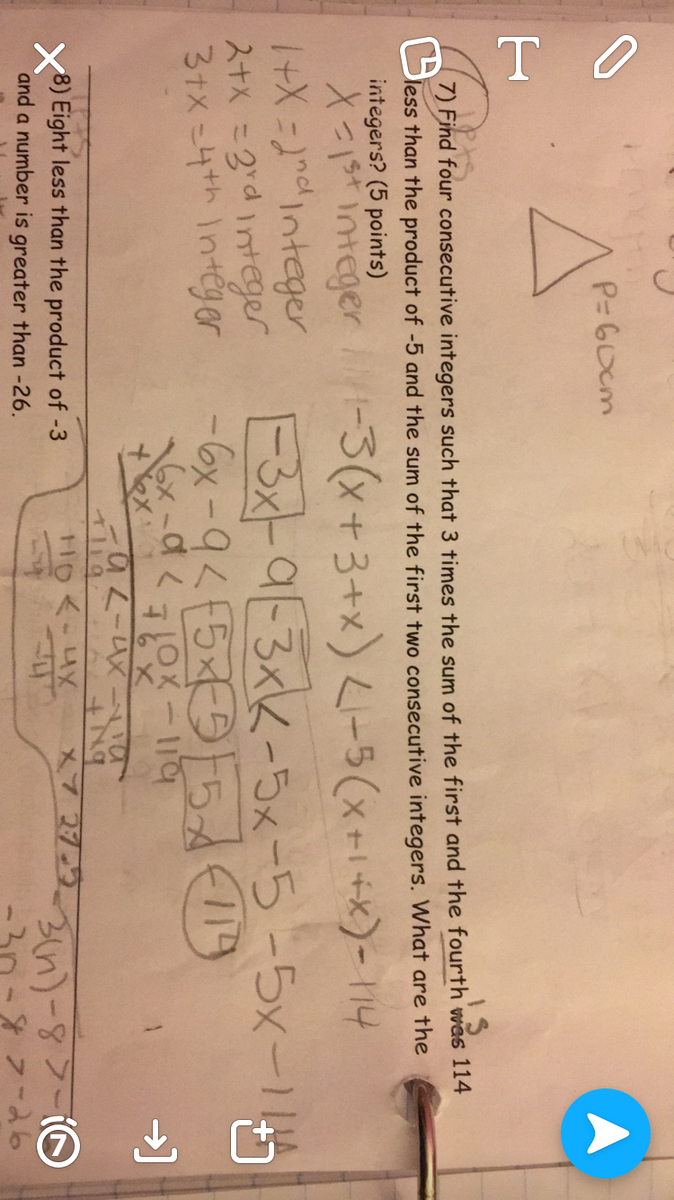 T
P=60cm
7) Find four consecutive integers such that 3 times the sum of the first and the fourth was 114
is
less than the product of -5 and the sum of the first two consecutive integers. What are the
integers? (5 points)
x = 1st integer
1+x = 2nd integer
2+x = 3rd integer
3+x = 4th integer
-3(x+3+x) < -5(x+1+x)-114
-3x -9 -3x < -5x -5 -5x -114
-6x -9 < -5x -5 -5x -114
-6x -9 < -10x -119
+6x +6x
-9 < -4x -119
+119 +119
110 < -4x
-4 -4
x > 27.5
8) Eight less than the product of -3
and a number is greater than -26.
-3(n) -8 >
-3n -8 > -26
7